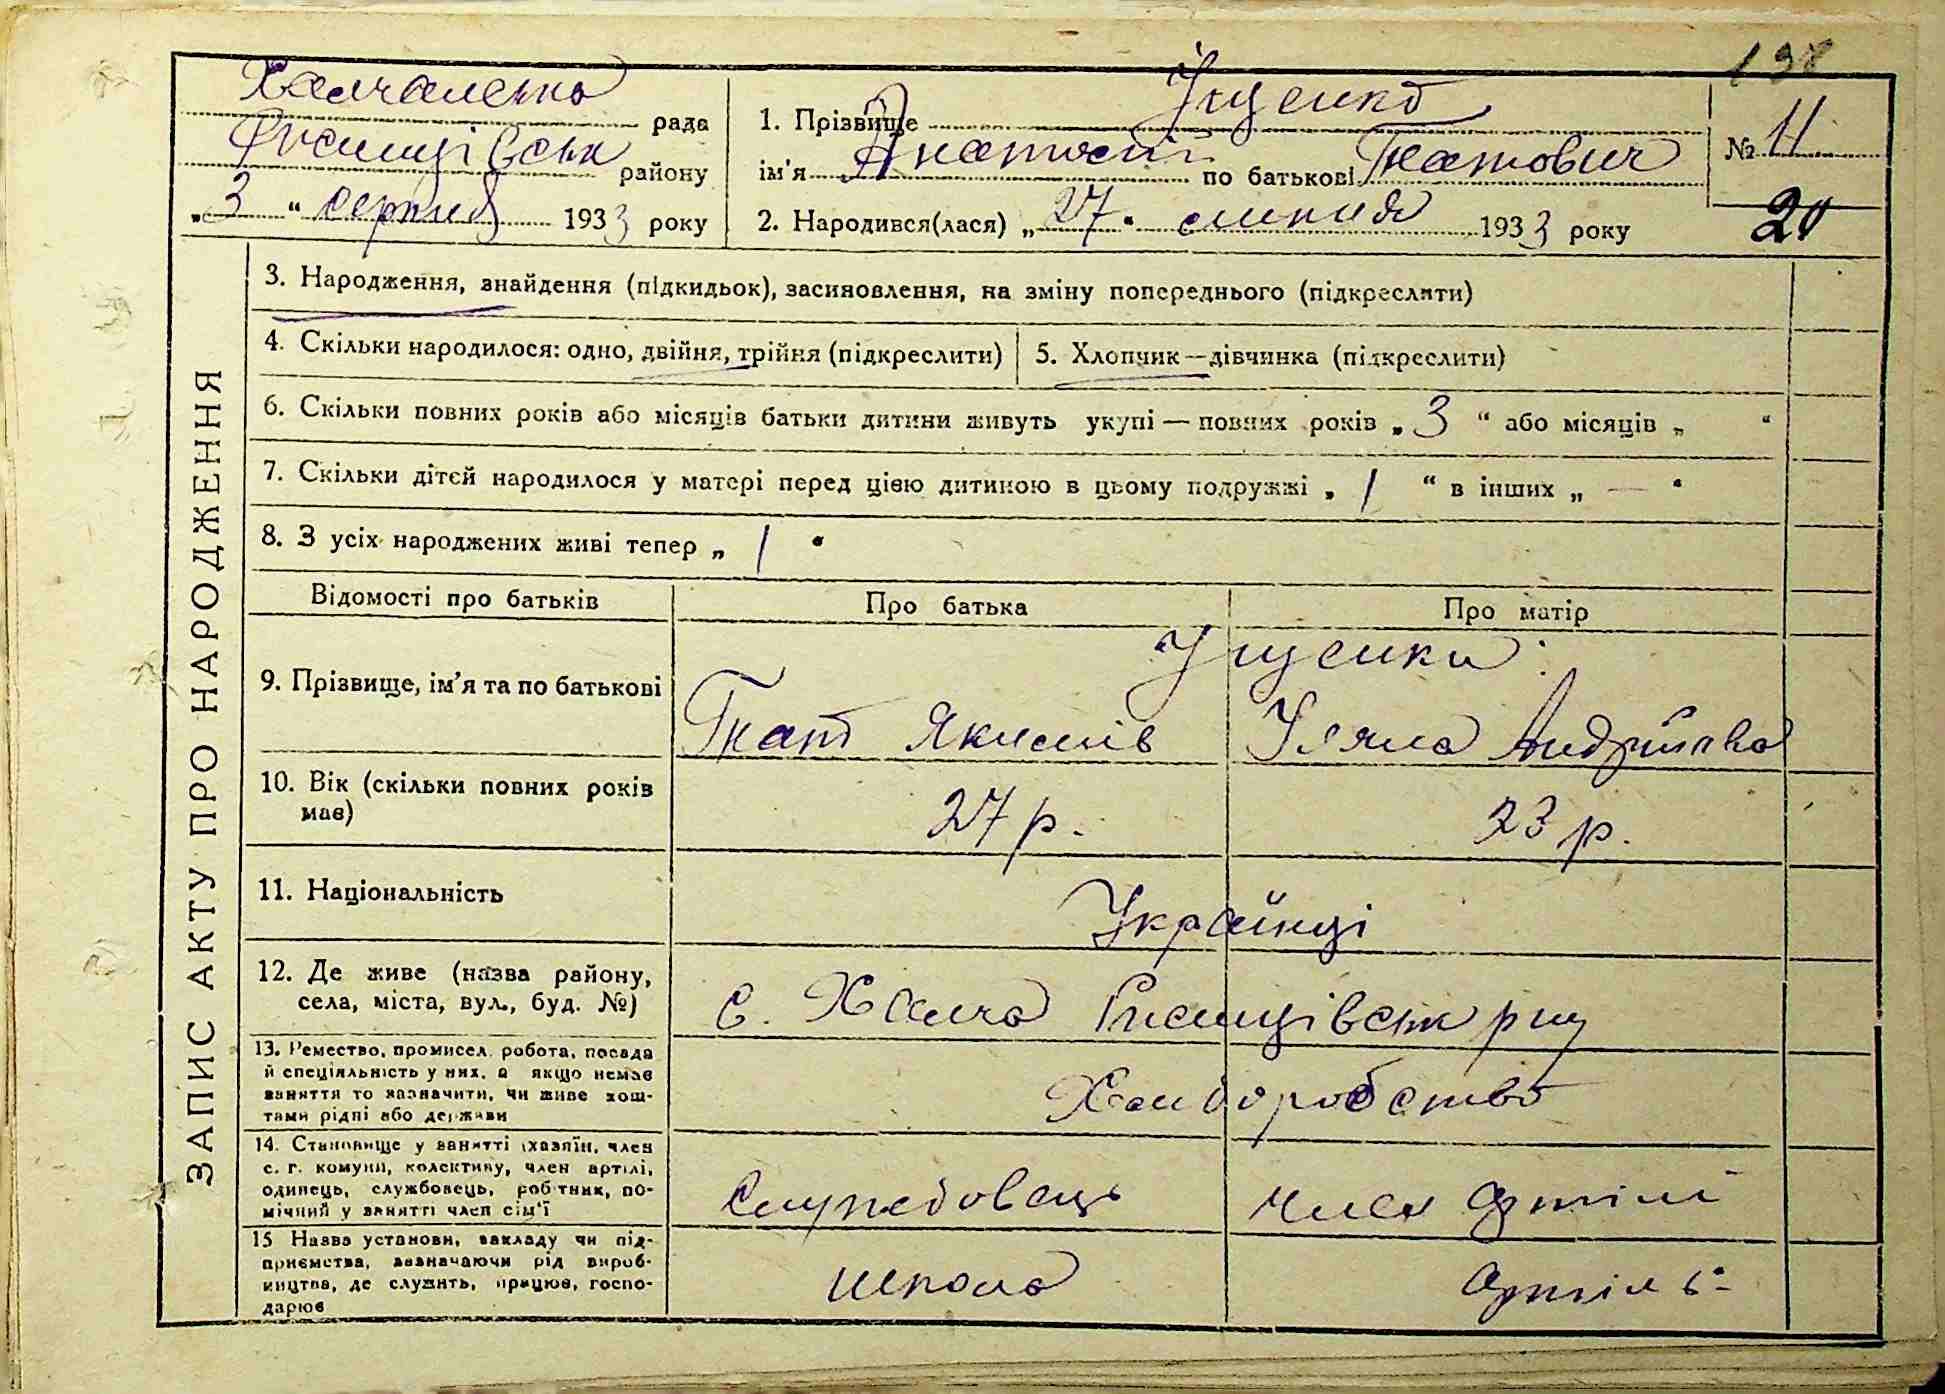 198
Халчанська рада
Ржищівськ району
„3“ серпня 1933 року
1. Прізвище Іщенко
ім'я Анатолій по батькові Гнатович
2. Народився(лася) „27“ липня 1933 року
№ 11
20
ЗАПИС АКТУ ПРО НАРОДЖЕННЯ
3. Народження, знайдення (підкидьок), засиновлення, на зміну попереднього (підкреслити)
4. Скільки народилося: одно, двійня, трійня (підкреслити)
5. Хлопчик—дівчинка (підкреслити)
6. Скільки повних років або місяців батьки дитини живуть укупі — повних років „3“ або місяців „ “
7. Скільки дітей народилося у матері перед цією дитиною в цьому подружжі „1“ в інших „—“
8. З усіх народжених живі тепер „1“
Відомості про батьків
Про батька
Про матір
9. Прізвище, ім'я та по батькові
Іщенки
Гнат Якимів
Уляна Андріївна
10. Вік (скільки повних років
має)
27 р.
23 р.
11. Національність
Українці
12. Де живе (назва району,
села, міста, вул., буд. №)
с. Халча Ржищівськ р-ну
13. Ремество, промисел, робота, посада
й спеціяльність у них, а якщо немає
заняття то зазначити, чи живе кош-
тами рідні або держави
Хліборобство
14. Становище у занятті (хазяїн, член
с. г. комуни, колективу, член артілі,
одинець, службовець, робітник, по-
мічний у занятті член сім'ї
Службовець
член артілі
15 Назва установи, закладу чи під-
приємства, зазначаючи рід вироб-
ництва, де служить, працює, госпо-
дарює
школа
артіль